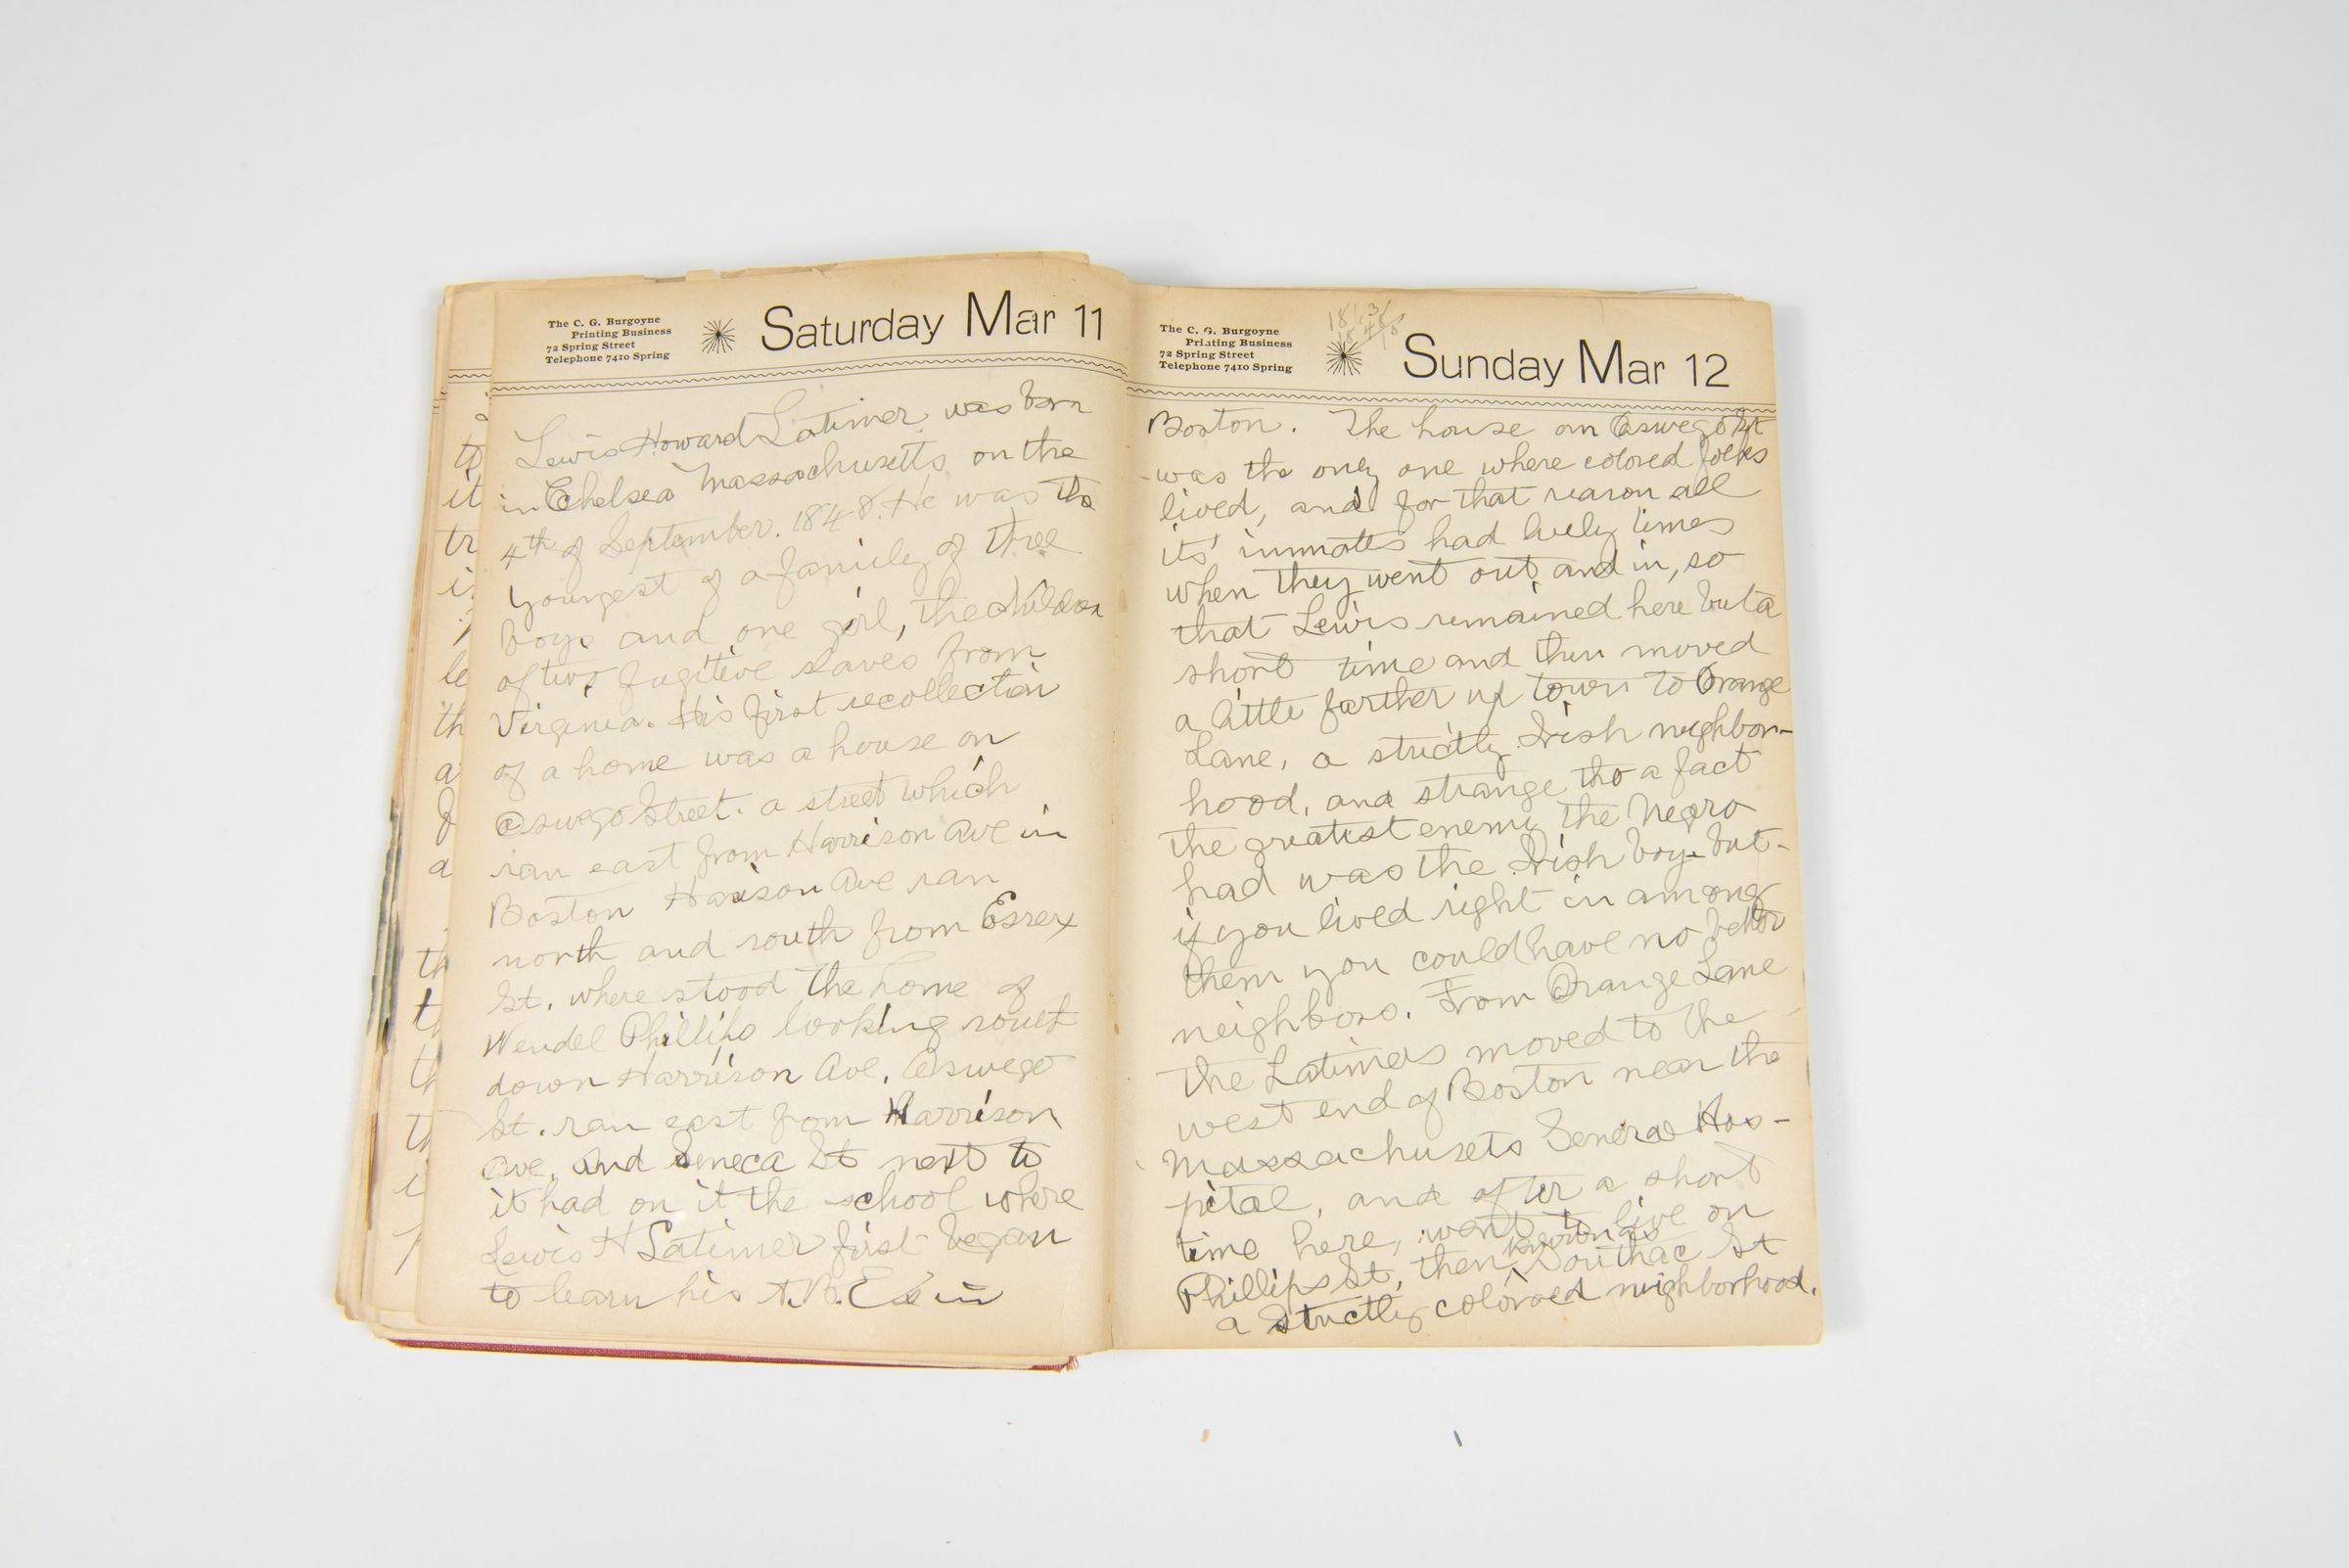 The C. G. Burgoyne
Printing Business
72 Spring Street
Telephone 7410 Spring
Saturday Mar 11
Lewis Howard Latimer was born
in Chelsea Massachusetts on the
4th of September. 1848. He was the
youngest of a family of three
boys and one girl, the children
of two fugitive slaves from
Virginia. His first recollection
of a home was a house on
Oswego Street. a street which
ran east from Harrison Ave in
Boston Harison Ave ran
north and south from Essex
St. where stood the home of
Wendel Phillips looking south
down Harrison Ave. Oswego
St. ran east from Harrison
Ave. and Seneca St next to
it had on it the school where
Lewis H Latimer first began
to learn his A.B.C's in
The C. G. Burgoyne
Printing Business
72 Spring Street
Telephone 7410 Spring
Sunday Mar 12
Boston. The house on Oswego St
was the only one where colored folks
lived, and for that reason all
its' inmates had lively times
when they went out and in, so
that Lewis remained here but a
short time and then moved
a little farther up town to Orange
Lane, a strictly Irish neighbor-
hood, and strange tho a fact
the greatest enemy the Negro
had was the Irish boy. but-
if you lived right in among
them you could have no better
neighbors. From Orange Lane
the Latimers moved to the
west end of Boston near the
Massachusets General Hos-
pital, and after a short
time here, went to live on
Phillips St, then known as Southac St
a strictly colored neighborhood.
to
it
tr
le
th
a
a
th
th
th